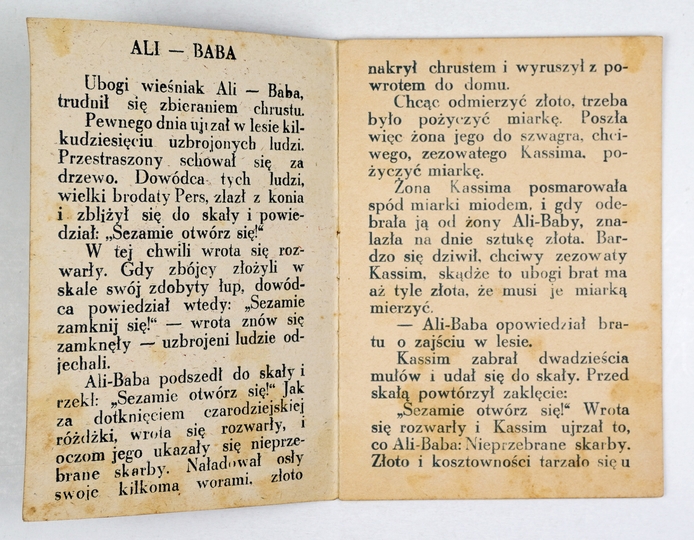 ALI — BABA
Ubogi wieśniak Ali — Baba,
trudnił się zbieraniem chrustu.
Pewnego dnia ujrzał w lesie kil-
kudziesięciu uzbrojonych ludzi.
Przestraszony schował się za
drzewo. Dowódca tych ludzi,
wielki brodaty Pers, zlazł z konia
i zbliżył się do skały i powie-
dział: „Sezamie otwórz się!“
W tej chwili wrota się roz-
warły. Gdy zbójcy złożyli w
skale swój zdobyty łup, dowód-
ca powiedział wtedy: „Sezamie
zamknij się!“ — wrota znów się
zamknęły — uzbrojeni ludzie od-
jechali.
Ali-Baba podszedł do skały i
rzekł: „Sezamie otwórz się!“ Jak
za dotknięciem czarodziejskiej
różdżki, wrota się rozwarły, i
oczom jego ukazały się nieprze-
brane skarby. Naładował osły
swoje kilkoma worami. złoto
nakrył chrustem i wyruszył z po-
wrotem do domu.
Chcąc odmierzyć złoto, trzeba
było pożyczyć miarkę. Poszła
więc żona jego do szwagra, chci-
wego, zezowatego Kassima. po-
życzyć miarkę.
Żona Kassima posmarowała
spód miarki miodem, i gdy ode-
brała ją od żony Ali-Baby, zna-
lazła na dnie sztukę złota. Bar-
dzo się dziwił, chciwy zezowaty
Kassim, skądże to ubogi brat ma
aż tyle złota, że musi je miarką
mierzyć.
— Ali-Baba opowiedział bra-
tu o zajściu w lesie.
Kassim zabrał dwadzieścia
mułów i udał się do skały. Przed
skałą powtórzył zaklęcie:
„Sezamie otwórz się!“ Wrota
się rozwarły i Kassim ujrzał to,
co Ali-Baba: Nieprzebrane skarby.
Złoto i kosztowności tarzało się u